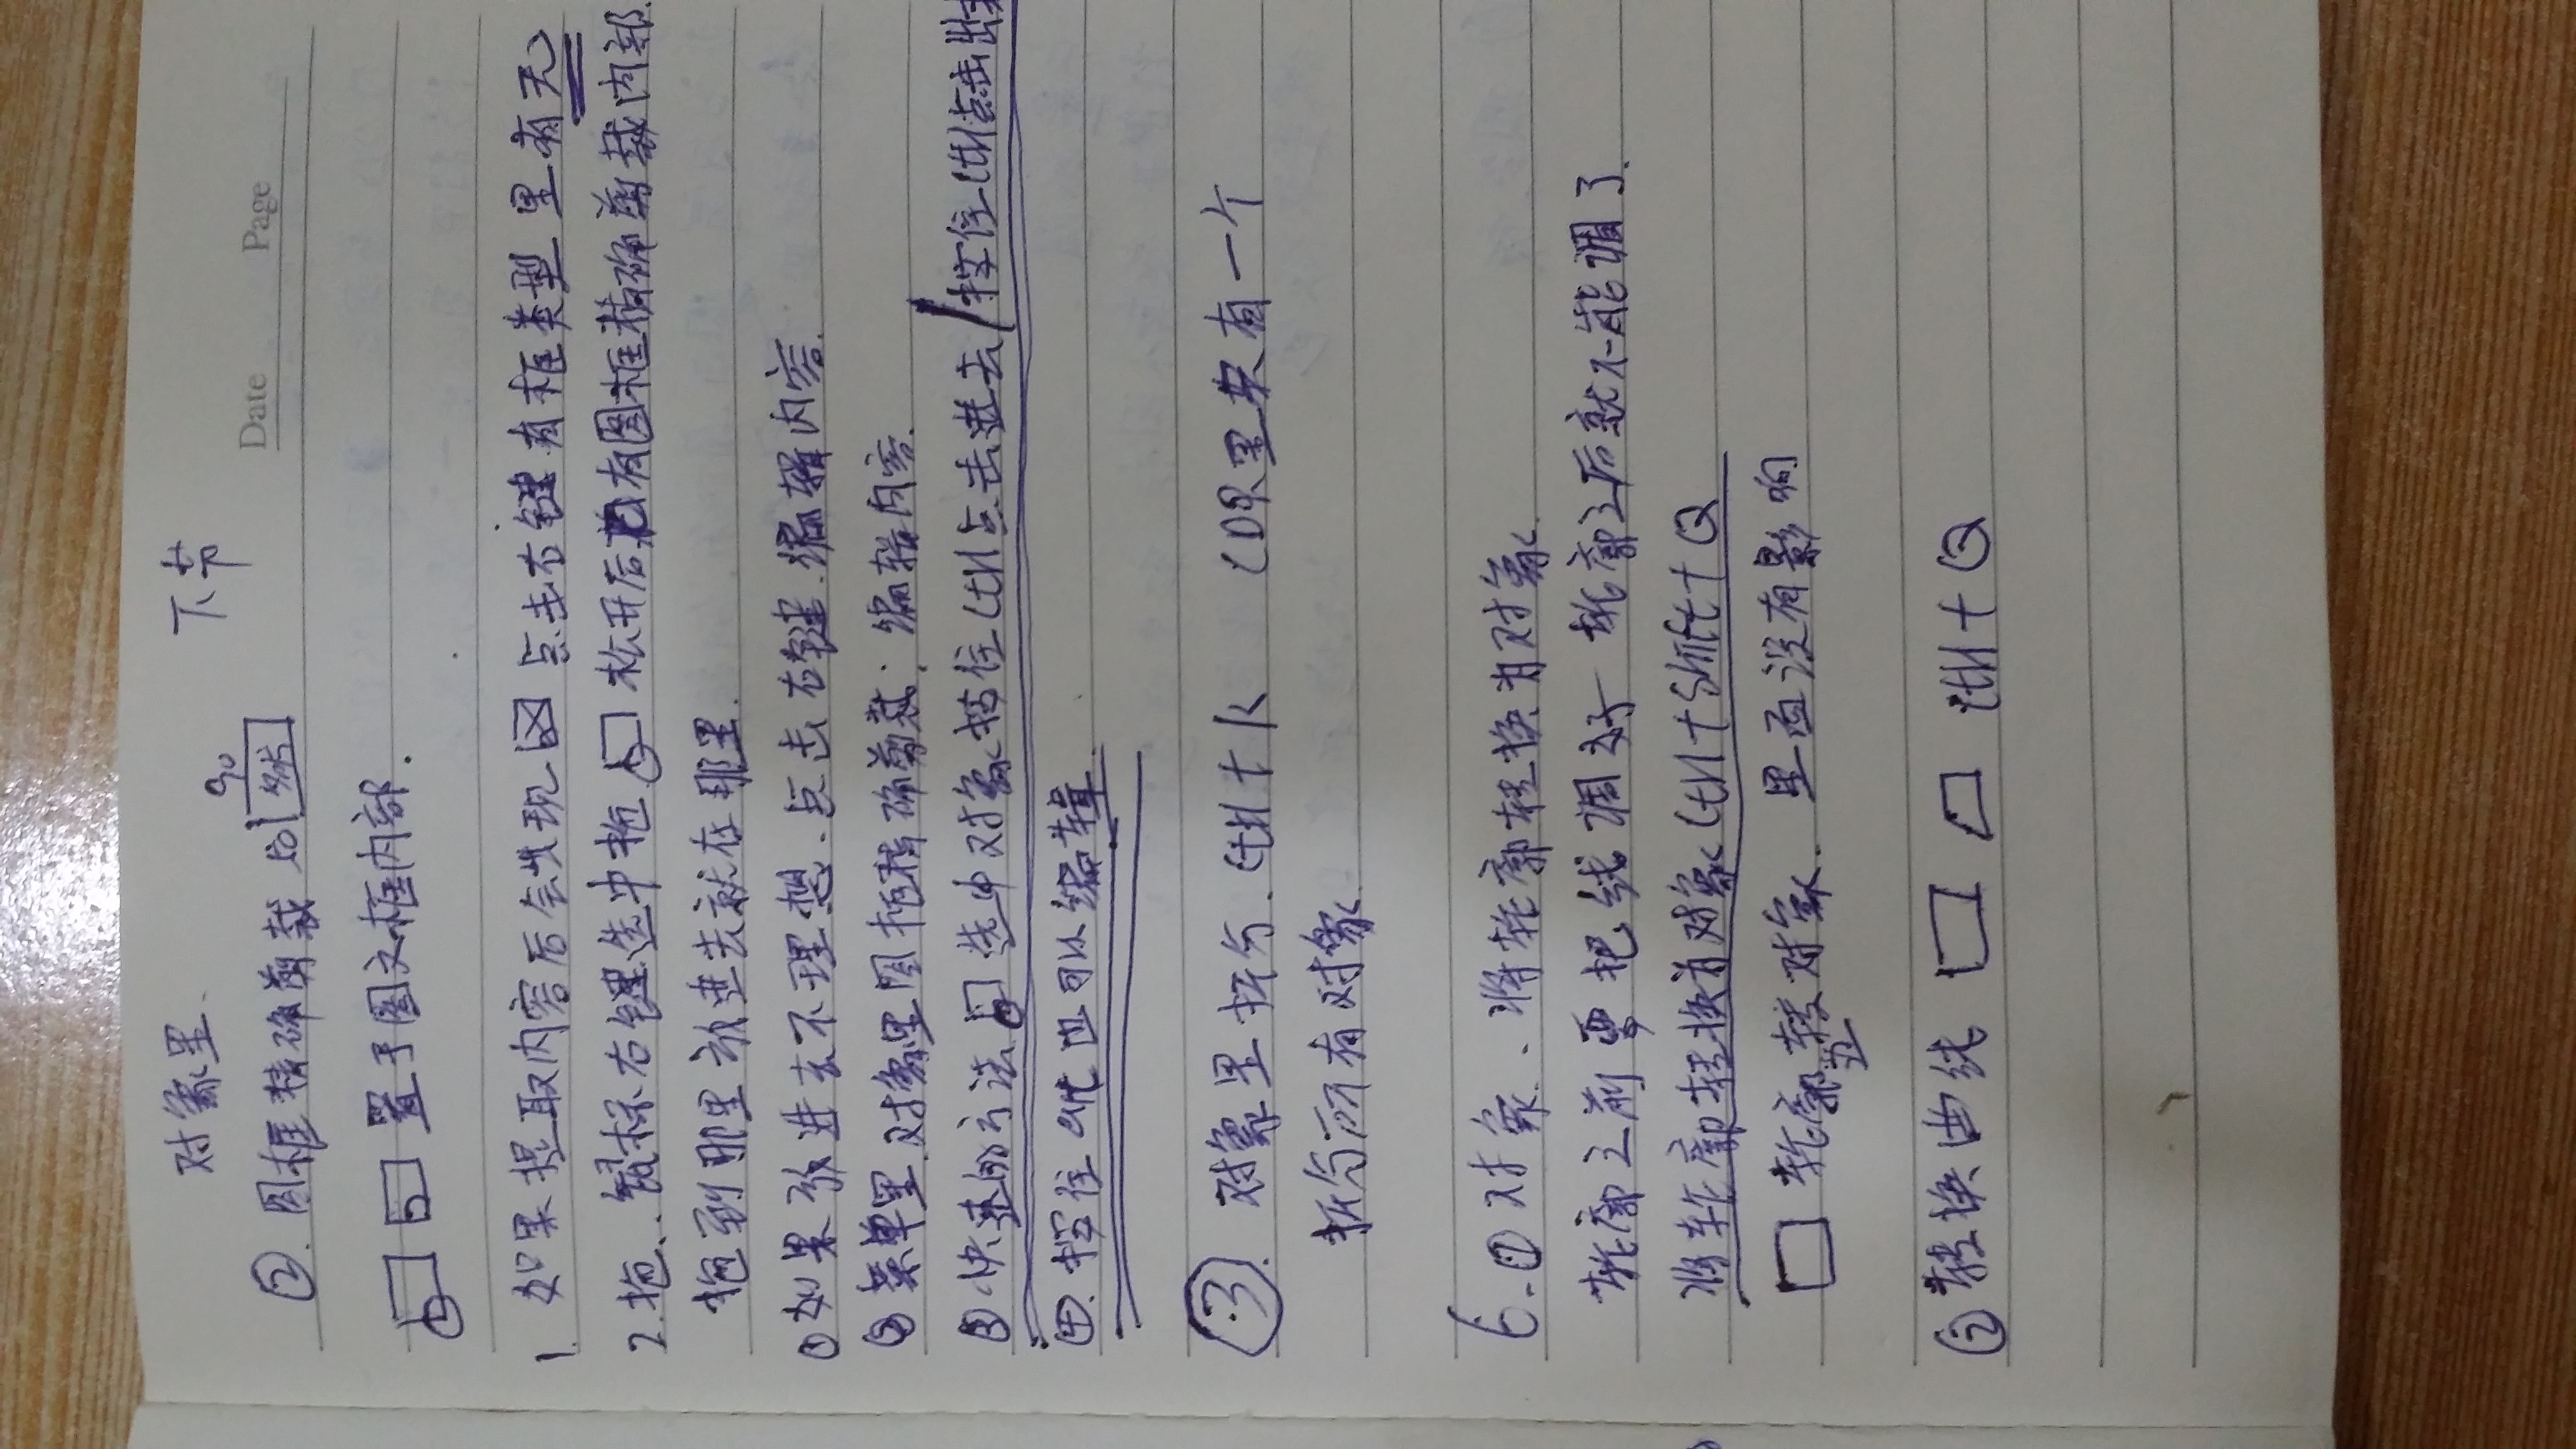 对象里. 下节
Date Page
② 图框精确剪裁
置于图文框内部.
1. 如果提取内容后会出现 点击右键有框类型里有无
2. 拖、鼠标右键选中拖 松开后 有图框精确剪裁内部.
拖到那里放进去就在那里.
① 如果放进去不理想. 点击右键. 编辑内容.
② 菜单里. 对象里图框精确剪裁: 编辑内容.
③ 快速的方法 选中对象按住Ctrl点击进去/按住Ctrl点击出来
④. 按住 也可以编辑
③. 对象里拆分. Ctrl+K CDR里只有一个
拆分所有对象
6.① 对象、将轮廓转换为对象.
轮廓之前要把线调好 轮廓之后就不能调了.
将轮廓转换为对象Ctrl+Shift+Q
轮廓转对象. 里面没有影响
② 转换曲线 Ctrl+Q